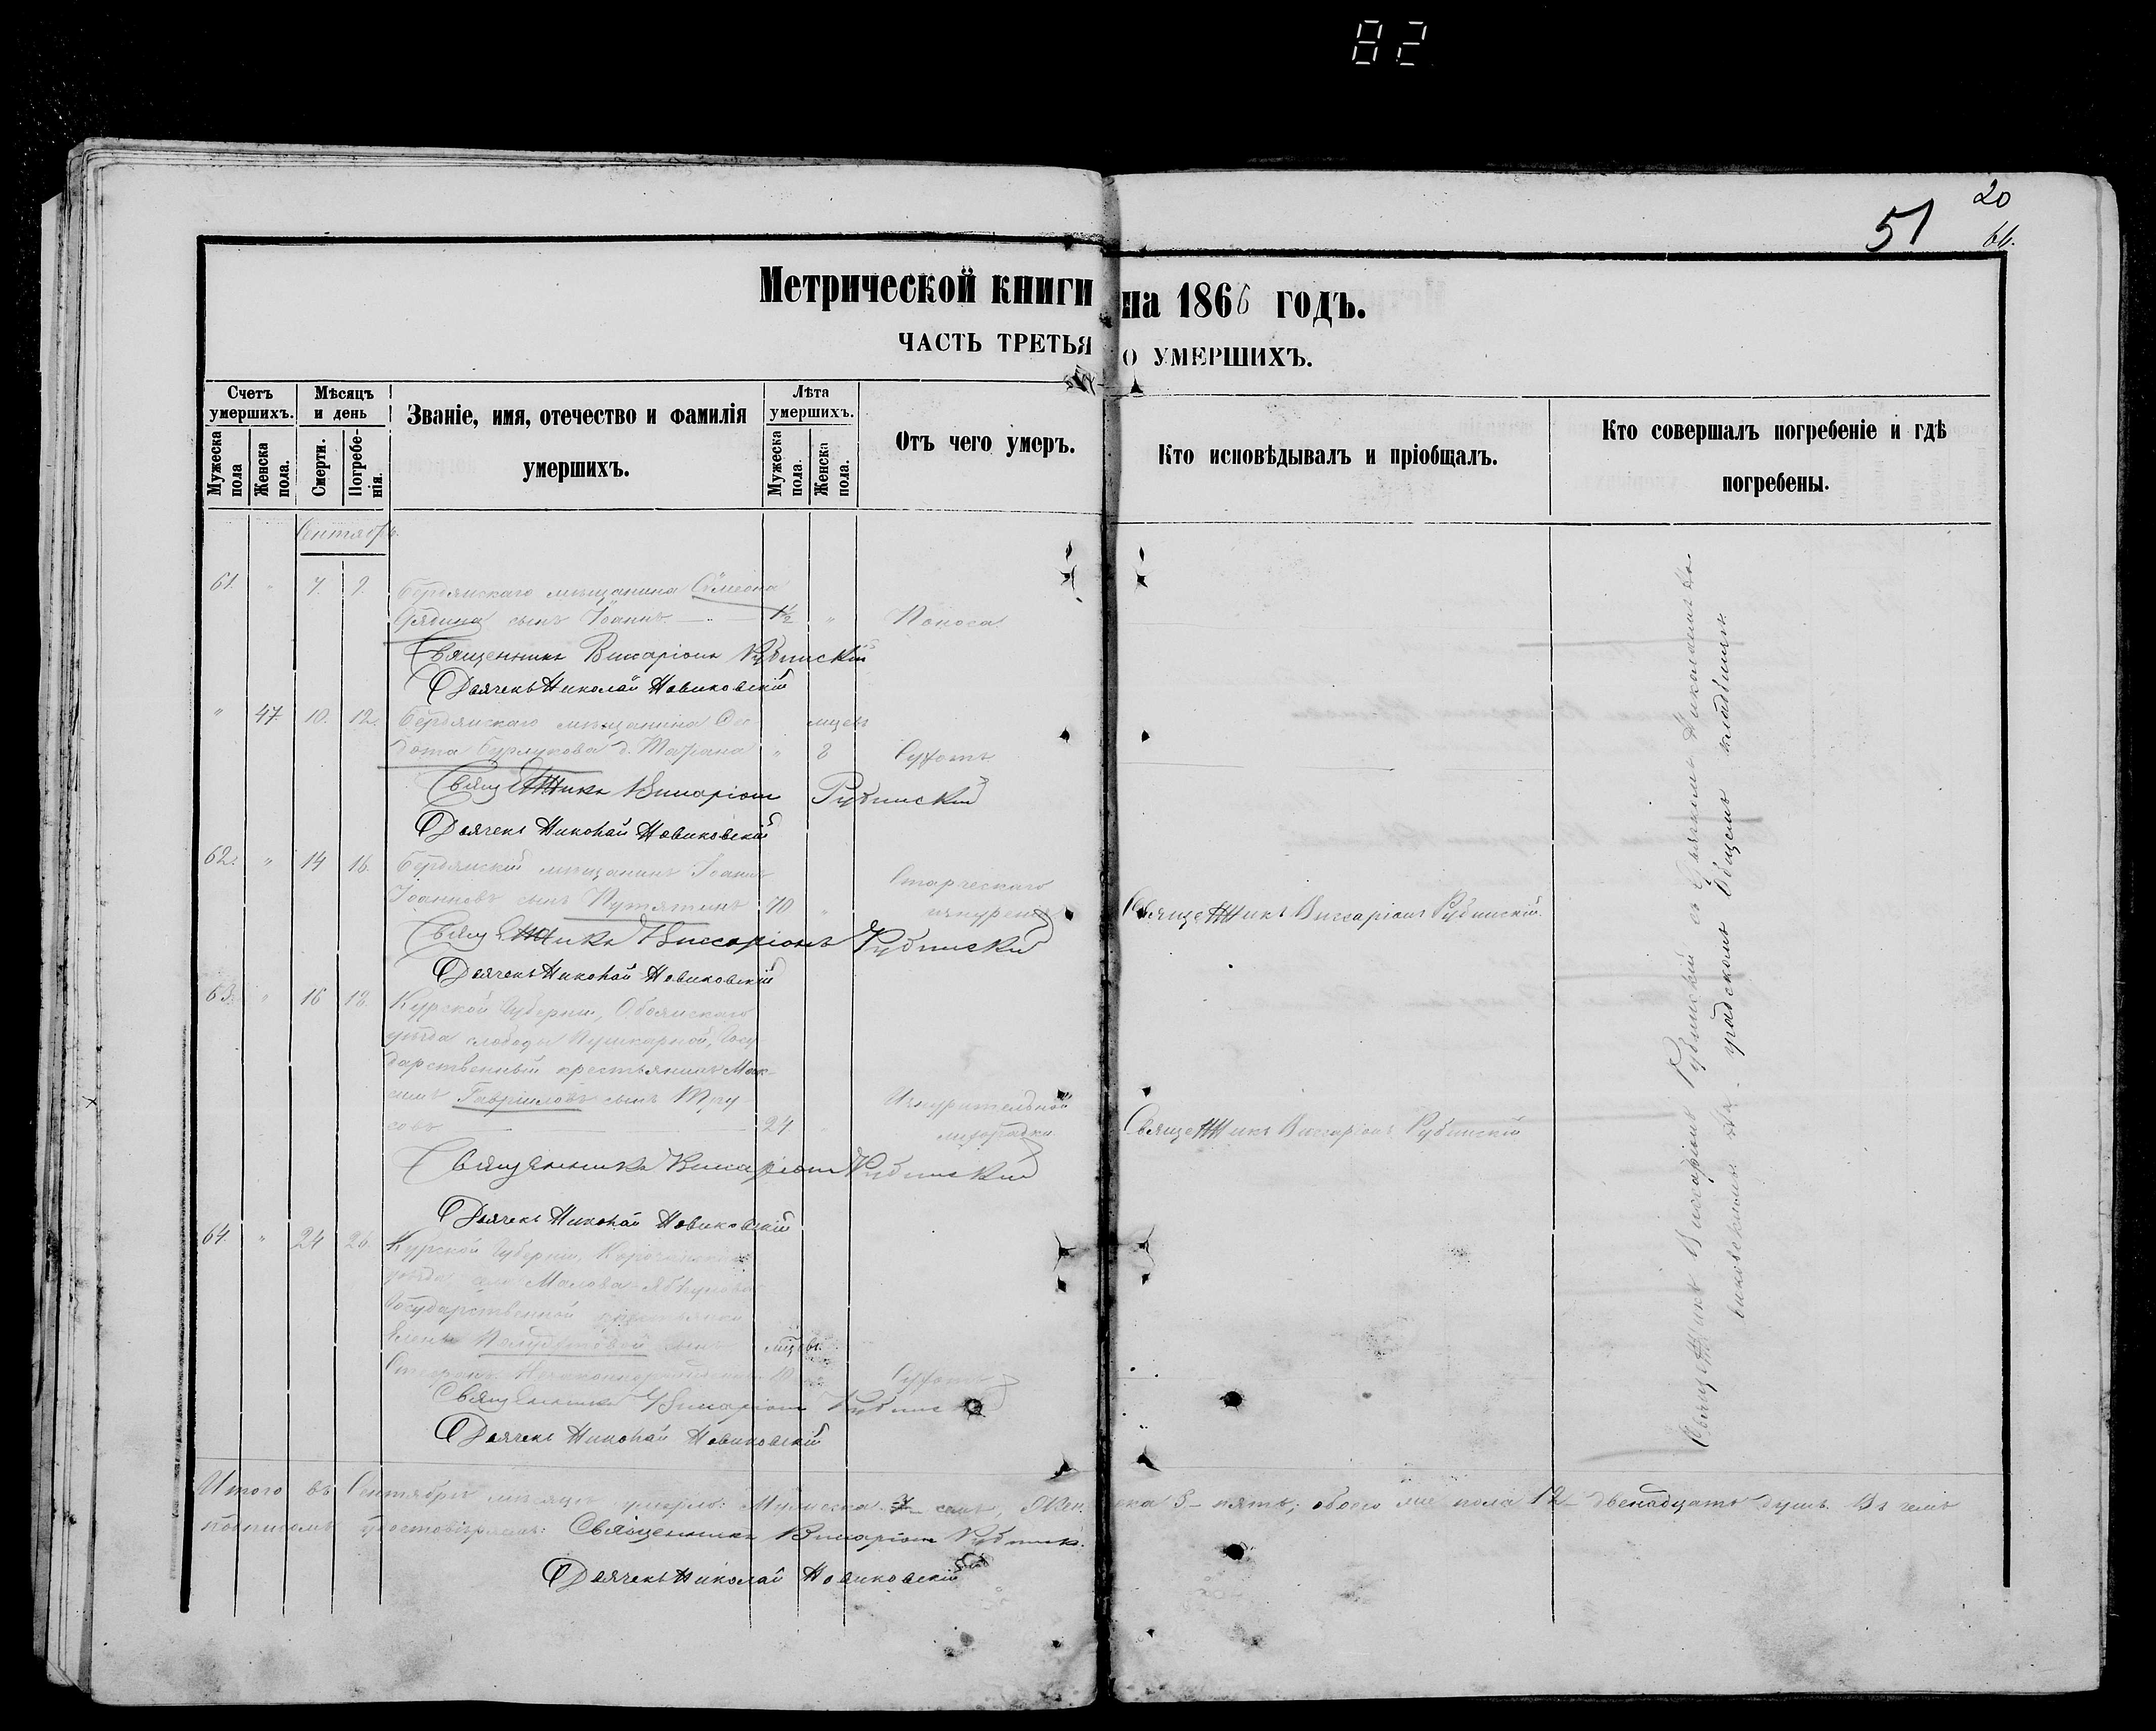 82
20
51
66.
Метрической книги на 1866 годъ.
ЧАСТЬ ТРЕТЬЯ О УМЕРШИХЪ.
Счетъ умершихъ.
Мѣсяцъ и день
Званіе, имя, отечество и фамилія умершихъ.
Лѣта умершихъ.
Отъ чего умеръ.
Кто исповѣдывалъ и пріобщалъ.
Кто совершалъ погребеніе и гдѣ погребены.
Мужеска пола
Женска пола.
Смерти.
Погребенія.
Мужеска пола.
Женска пола.
Сентябрь.
61. " 7. 9. Бердянскаго мѣщанина Симеона
сынъ Іоаннъ 1½ " Поноса
Священникъ Виссаріонъ Рубинскій
Дьячекъ Николай Новиковскій
" 47 10. 12. Бердянскаго мѣщанина Ѳео- мцевъ
дота Бурлукова д. " 8 Сухотъ
Священникъ Виссаріонъ Рубинскій
Дьячекъ Николай Новиковскій
62. " 14 16. Бердянскій мѣщанинъ Іоаннъ Старческаго
Іоанновъ сынъ Путятинъ 70 " Священникъ Виссаріонъ Рубинскій.
Священникъ Виссаріонъ Рубинскій
Дьячекъ Николай Новиковскій
63. " 16 18. Курской Губерніи, Обоянскаго
уѣзда слободы Пушкарной, Госу
дарственный крестьянинъ Мак-
симъ Гавриловъ сынъ Тру Изнурительной
совъ 24 лихорадки Священникъ Виссаріонъ Рубинскій
Священникъ Виссаріонъ Рубинскій
Дьячекъ Николай Новиковскій
64. " 24 26. Курской Губерніи,
уѣзда села
Государственной крестьянки
Елены сынъ мцевъ
10 Сухотъ
Священникъ Виссаріонъ
Дьячекъ Николай Новиковскій
Священникъ Виссаріонъ Рубинскій съ Дьячкомъ Николаемъ
градскомъ Общемъ кладбищѣ.
Итого въ Сентябрѣ мѣсяцѣ умерло: Мужеска 7 семь, Женска 5 – пять; обоего же пола 12 – двенадцать душъ. Въ чемъ
подписомъ удостовѣряемъ: Священникъ Виссаріонъ
Дьячекъ Николай Новиковскій